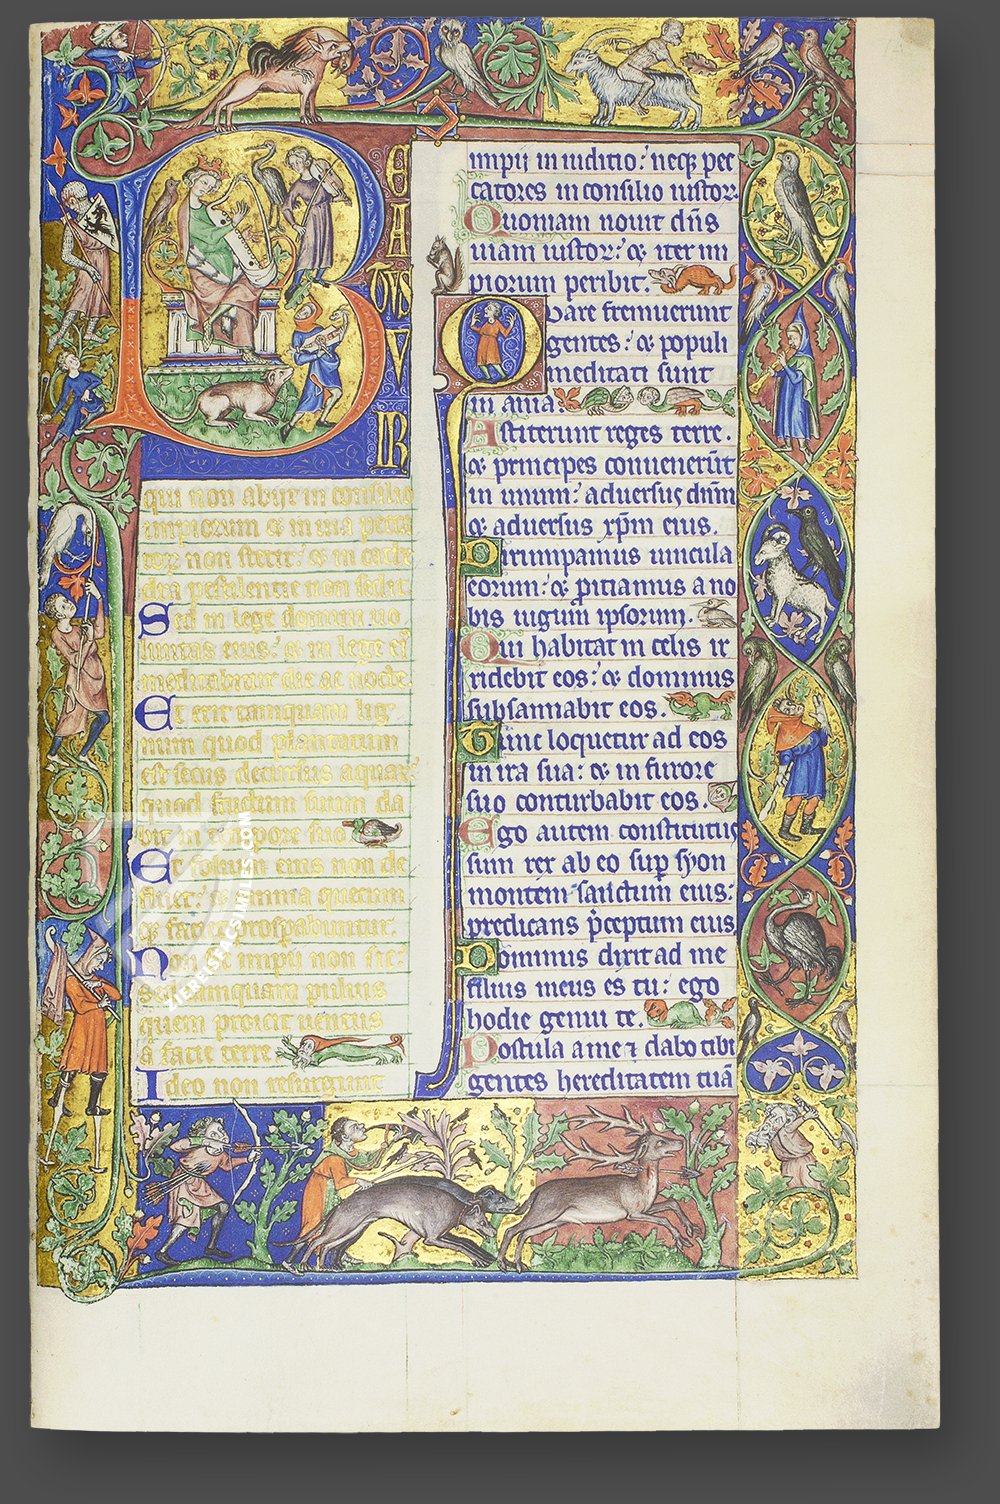 BEATUS V
IR
qui non abijt in consilio
impiorum & in uia pecca
tor non stetit: & in cathe
dra pestilentie non sedit.
Sed in lege domini uo
luntas eius: & in lege eius
meditabitur die ac nocte.
Et erit tamquam lig
num quod plantatum
est secus decursus aquar:
quod fructum suum da
bit in tempore suo
Et folium eius non de
fluet: & omnia quecum
q; faciet prosperabuntur.
Non sic impii non sic:
sed tamquam puluis
quem proicit uentus
a facie terre
Ideo non resurgunt
impij in iuditio: neq; pec
catores in consilio iustor.
Quoniam nouit dñs
uiam iustor: & iter im
piorum peribit.
Quare fremuerunt
gentes: & populi
meditati sunt
in ania:
Astiterunt reges terre.
& principes conuenerūt
in unum: aduersus dñm
& aduersus xp̄m eius.
Dirumpamus uincula
eorum: & p̄itiamus a no
bis iugum ipsorum.
Qui habitat in celis ir
ridebit eos: & dominus
subsannabit eos.
Tunc loquetur ad eos
in ira sua: & in furore
suo conturbabit eos.
Ego autem constitutus
sum rex ab eo sup̄ syon
montem sanctum eius:
predicans p̄ceptum eius
Dominus dixit ad me
filius meus es tu: ego
hodie genui te.
Postula a me ⁊ dabo tibi
gentes hereditatem tuā